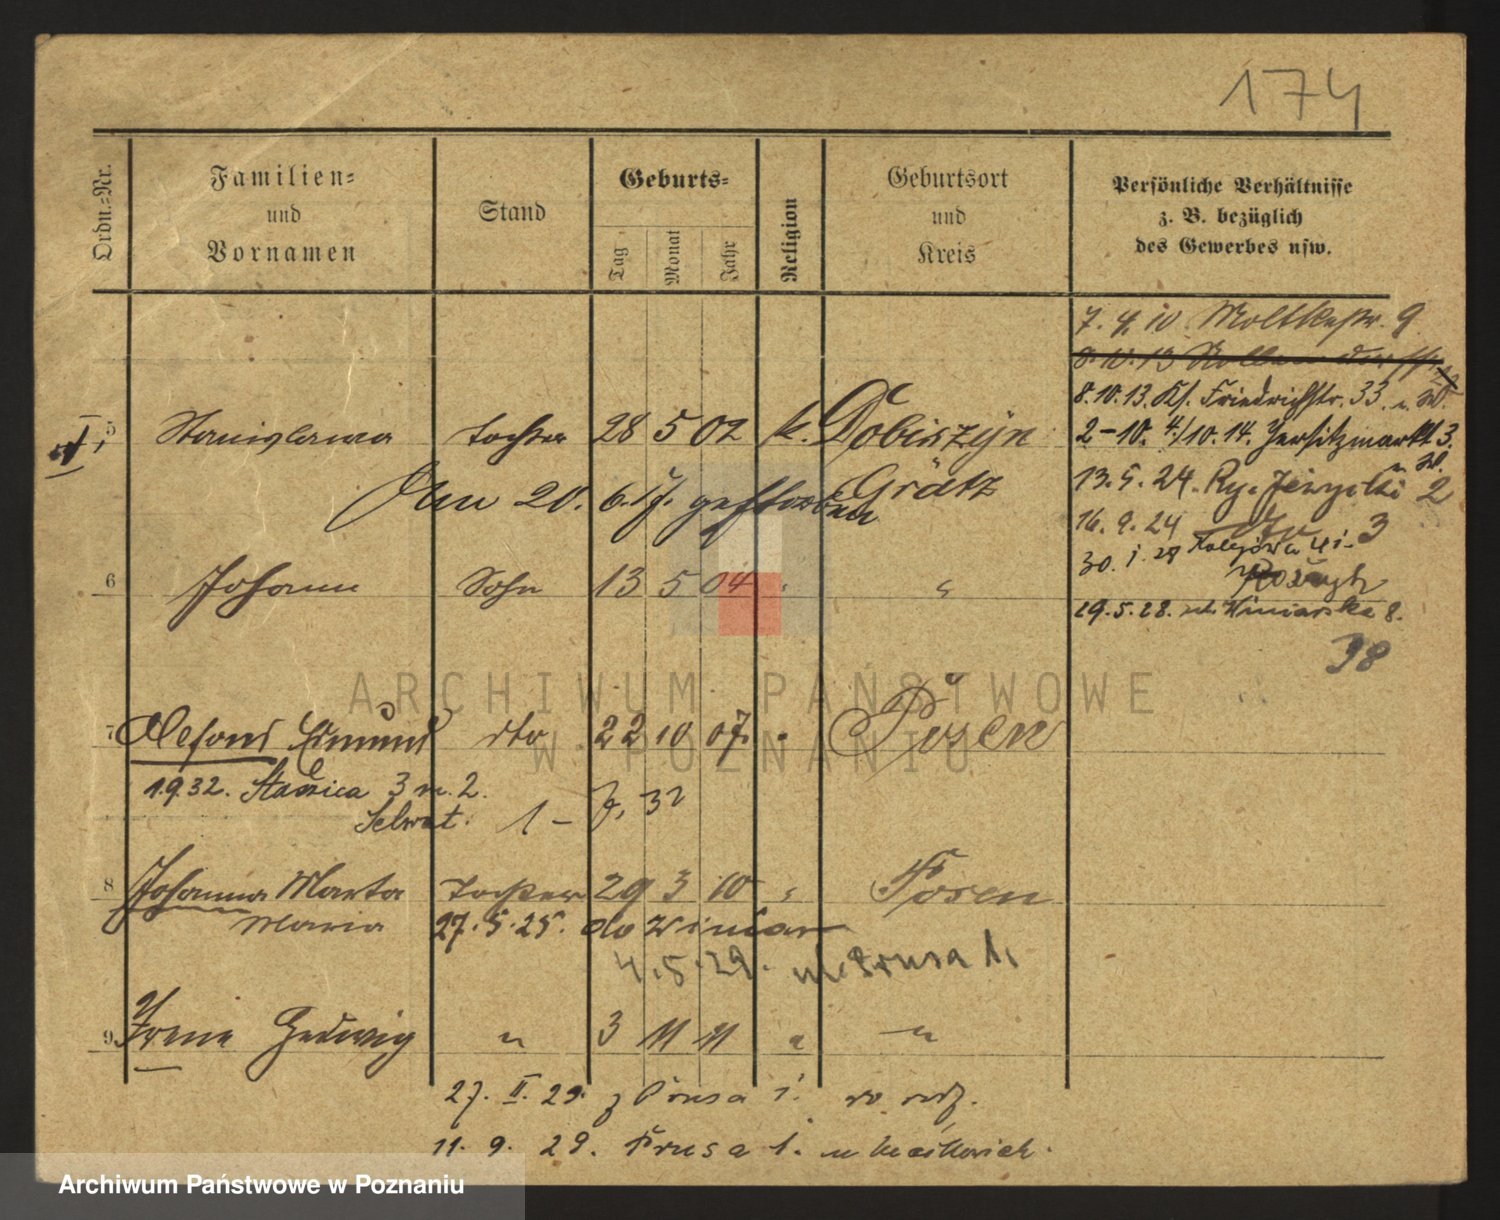 174
Ordn.-Nr.
Familien-
und
Vornamen
Stand
Geburts-
Tag
Monat
Jahr
Religion
Geburtsort
und
Kreis
Persönliche Verhältnisse
z. B. bezüglich
des Gewerbes usw.
7. 4. 10 Moltkestr. 9
8. 10. 13
8. 10. 13. Kl. Friedrichstr. 33.
5 Stanislawa Tochter 28 5 02 k. Dobieszyn
2-10. 4./10. 14. Jersitzmarkt 3.
Grätz
13. 5. 24. Ry. Jeżycki 2
Am 20. 6. 17. gestorben
16. 9. 24 3
30. 1. 28 Kolejowa
6 Johann Sohn 13 5 04 "
29. 5. 28. ul. Winiarska 8.
38
7 Alefons Edmund dto 22 10 07. " Posen
1.9.32. Staszica 3 m. 2.
1 - 7. 32
8 Johanna Marta Tochter 29 3 10 " Posen
Maria 27. 5. 25. do Winiar
4. 5. 29. ul. Prusa 1.
9. Irene Hedwig " 3 11 11 " "
27. II. 29. z Prusa 1.
11. 9. 29. Prusa 1. u
ARCHIWUM PAŃSTWOWE
W POZNANIU
Archiwum Państwowe w Poznaniu